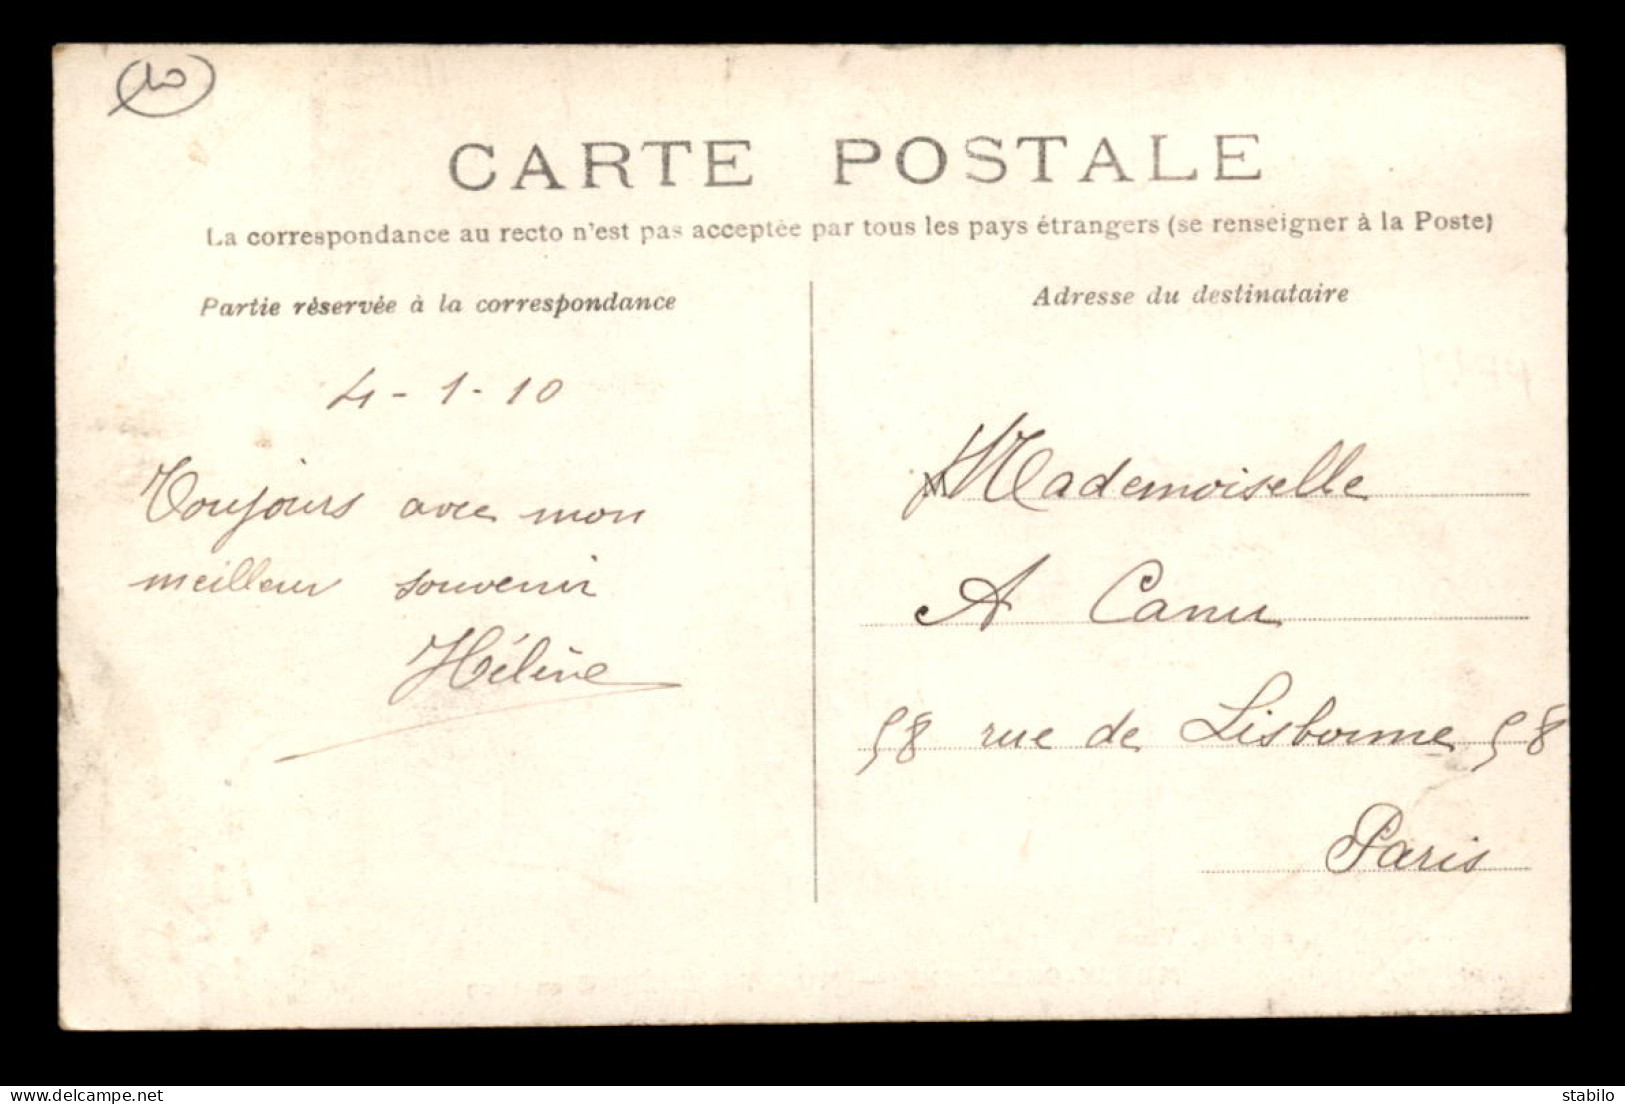 10
CARTE POSTALE
La correspondance au recto n'est pas acceptée par tous les pays étrangers (se renseigner à la Poste)
Partie réservée à la correspondance
4-1-10
Toujours avec mon
meilleur souvenir
Hélène
Adresse du destinataire
Mademoiselle
A Canu
58 rue de Lisbonne 58
Paris
www.delcampe.net
stabilo